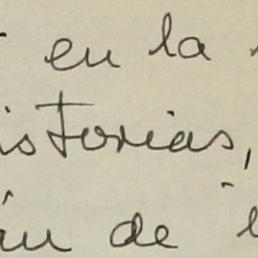 en la
istorias,
de